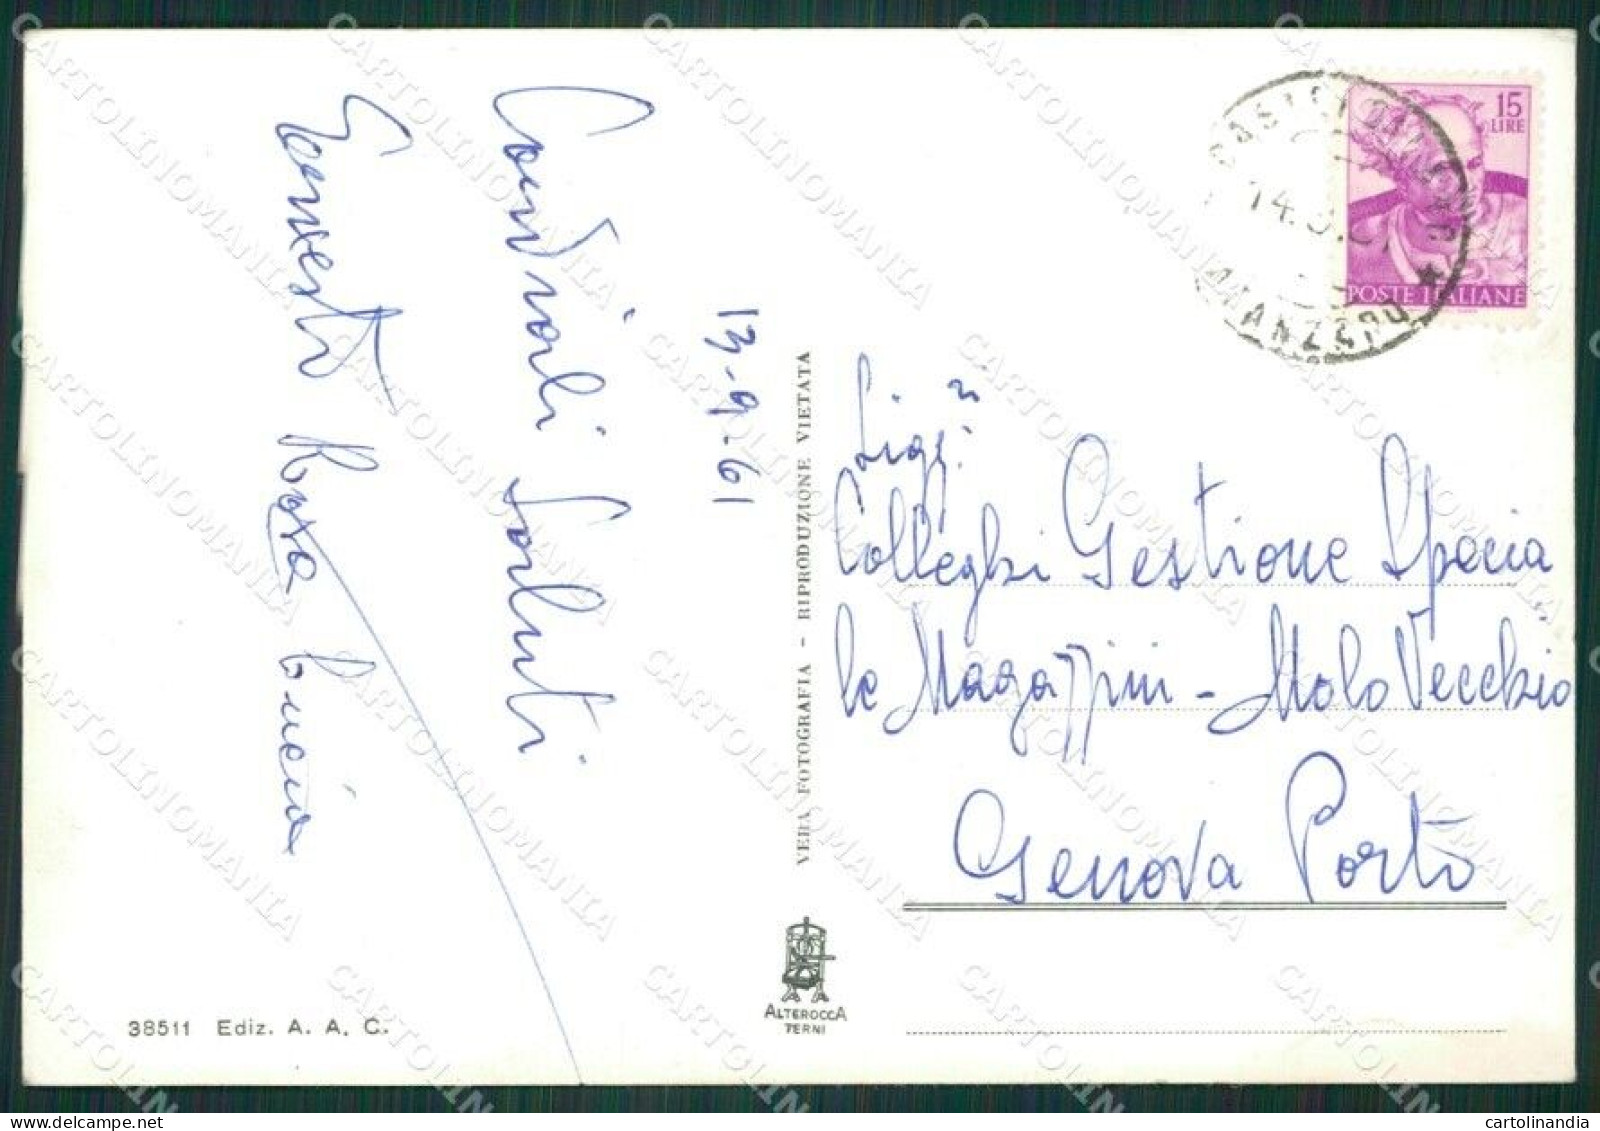 Cordiali Saluti
Ernesto Rosa Lucia
13-9-61
VERA FOTOGRAFIA - RIPRODUZIONE VIETATA
15
LIRE
POSTE ITALIANE
Sigg.ri
Colleghi Gestione Specia
le Magazzini - Molo Vecchio
Genova Porto
ALTEROCCA
TERNI
38511 Ediz. A. A. C.
CARTOLINOMANIA
cartolinandia